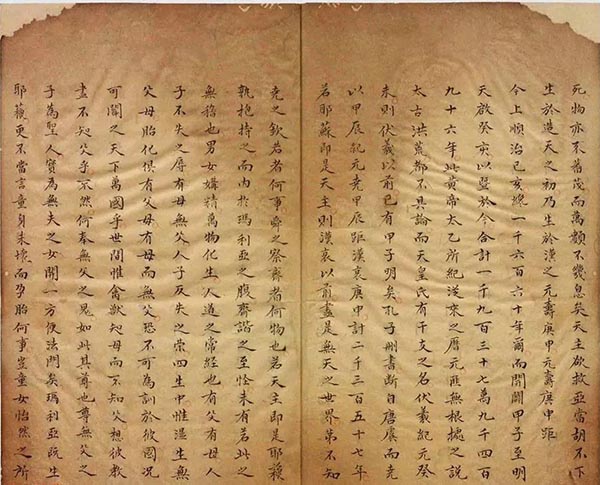 死物亦不蕃茂而萬類不幾息矣天主欲救亞當胡不下
生於造天之初乃生於漢之元壽庚申元壽庚申距
今上順治己亥纔一千六百六十年爾而開闢甲子至明
天啟癸亥以暨於今合計一千九百三十七萬九千四百
九十六年此黃帝太乙所紀從來之曆元匪無根據之說
太古洪荒都不具論而天皇氏有干支之名伏羲紀元癸
未則伏羲以前已有甲子明矣孔子刪書斷自唐虞而堯
以甲辰紀元堯甲辰距漢哀庚申計二千三百五十七年
若耶蘇即是天主則漢哀以前盡是無天之世界第不知
堯之欽若者何事舜之察齊者何物也若天主即是耶穌
孰抱持之而內於瑪利亞之腹齊諧之至恠未有若此之
無稽也男女媾精萬物化生人道之常經也有父有母人
子不失之辱有母無父人子反失之榮四生中惟濕生無
父母胎化俱有父母有母而無父恐不可為訓於彼國況
可聞之天下萬國乎世間惟禽獸知母而不知父想彼教
盡不知父乎不然何奉無父之鬼如此其尊也尊無父之
子為聖人實為無夫之女開一方便法門矣瑪利亞既生
耶穌更不當言童身未壞而孕胎何事豈童女怡然之所